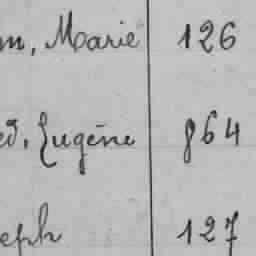 m, Marie 126
ed, Eugène 864
eph 127